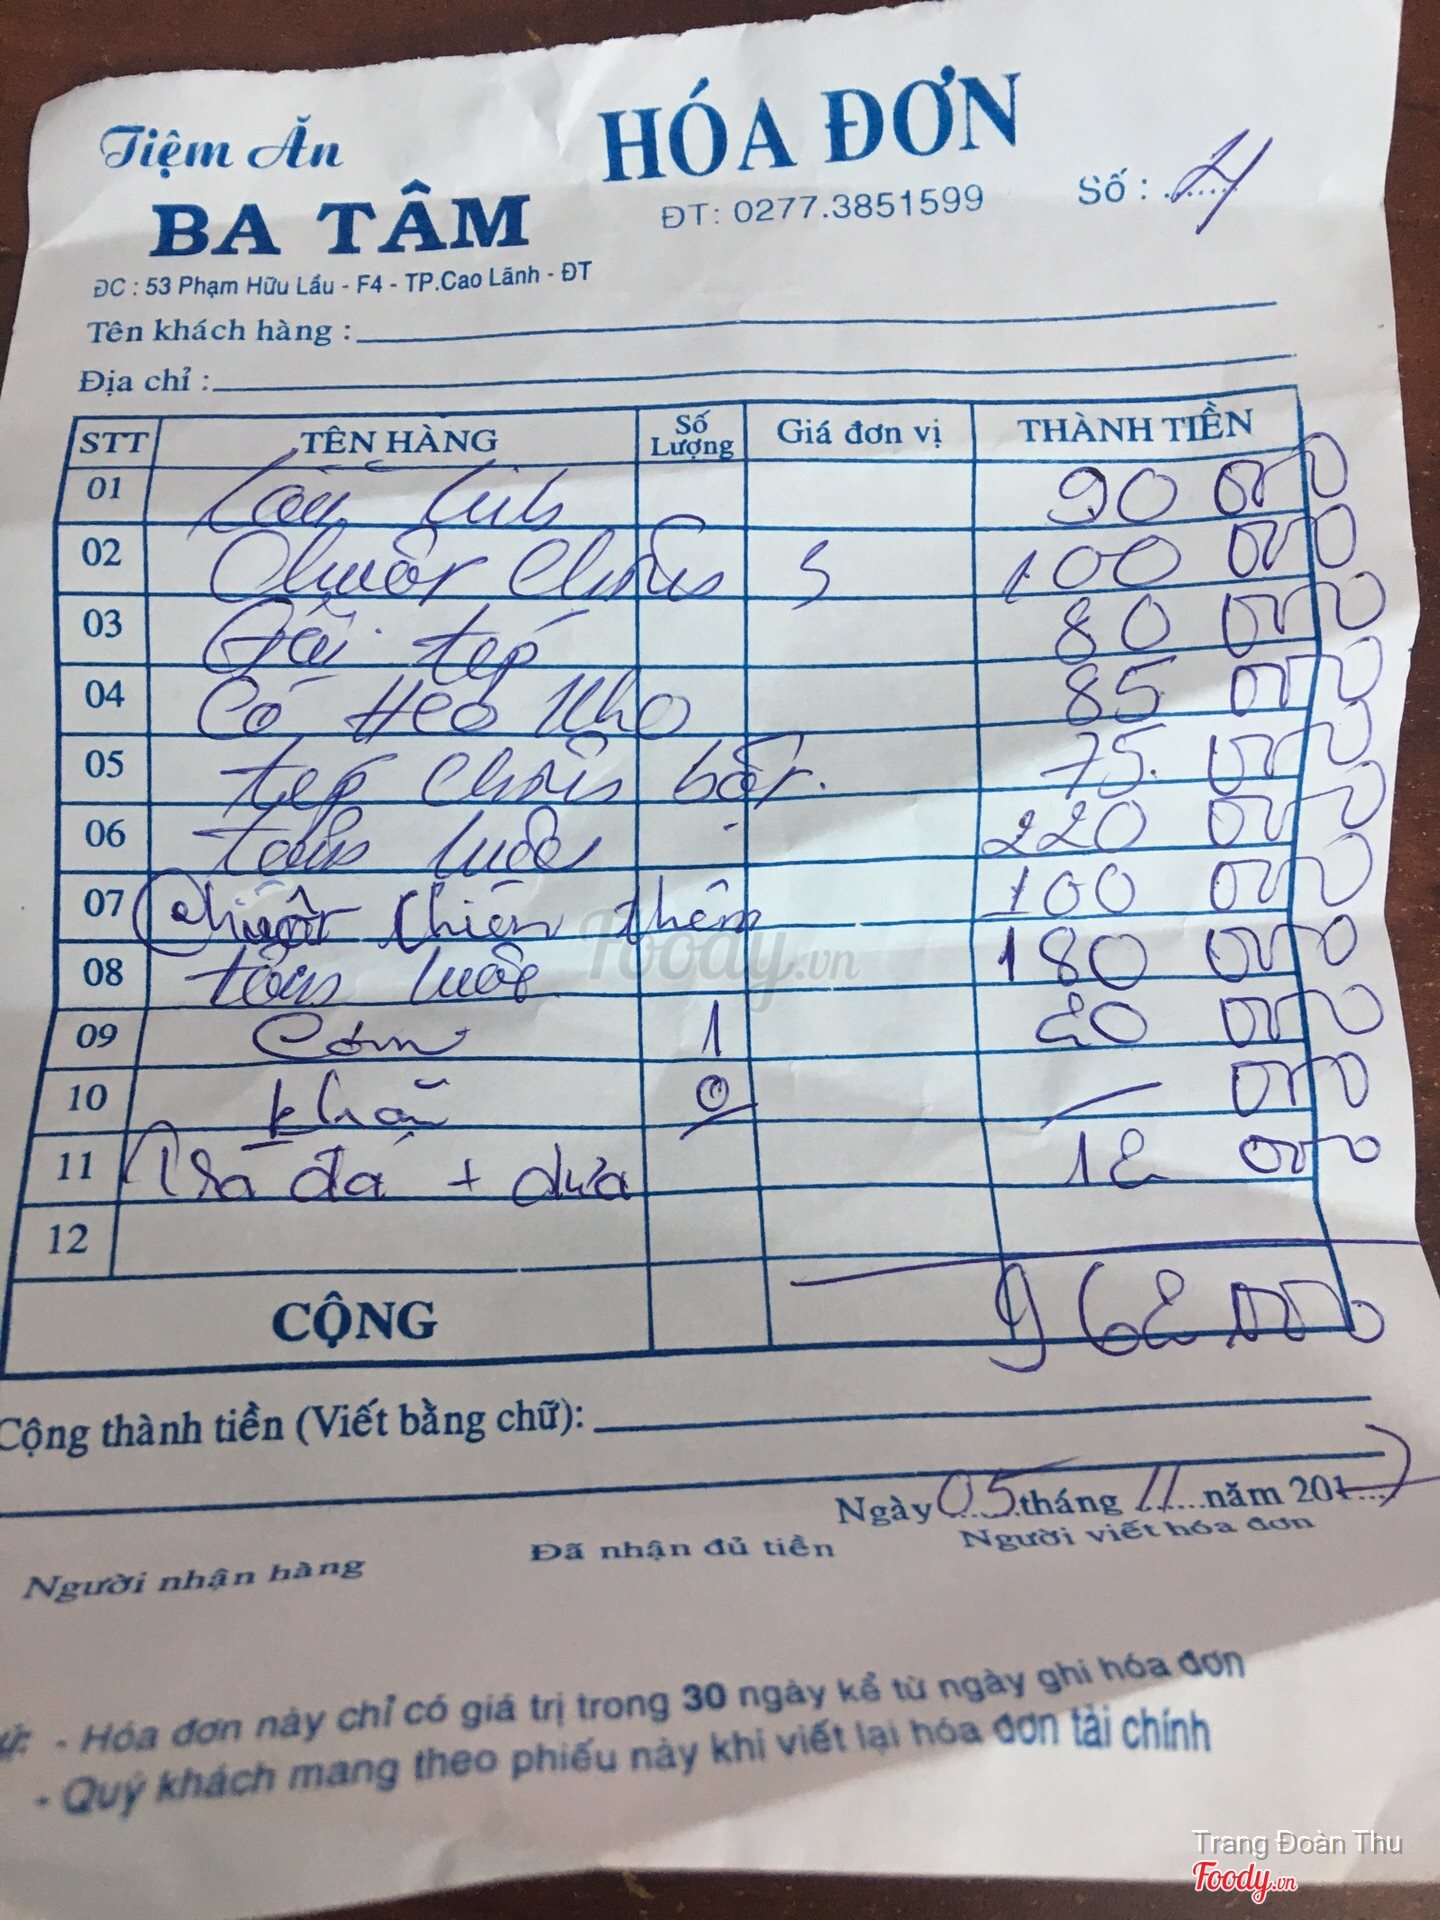 Tiệm Ăn
BA TÂM
HÓA ĐƠN
ĐT: 0277.3851599
Số : 4
ĐC : 53 Phạm Hữu Lầu - F4 - TP.Cao Lãnh - ĐT
Tên khách hàng :
Địa chỉ :
STT TÊN HÀNG Số Lượng Giá đơn vị THÀNH TIỀN
01 90 000
02 Chuột Chiên 5 100 000
03 Gỏi tép 80 000
04 Cá Heo Kho 85 000
05 tép Chiên bột. 75 000
06 luộc 220 000
07 Chuột Chiên thêm 100 000
08 luộc 180 000
09 Cơm 1 20 000
10 khăn 0 — 000
11 Trà đá + dừa 12 000
12
CỘNG 962.000
Cộng thành tiền (Viết bằng chữ):
Ngày 05 tháng 11 năm 2017
Người nhận hàng Đã nhận đủ tiền Người viết hóa đơn
- Hóa đơn này chỉ có giá trị trong 30 ngày kể từ ngày ghi hóa đơn
- Quý khách mang theo phiếu này khi viết lại hóa đơn tài chính
Foody.vn
Trang Đoàn Thu
Foody.vn